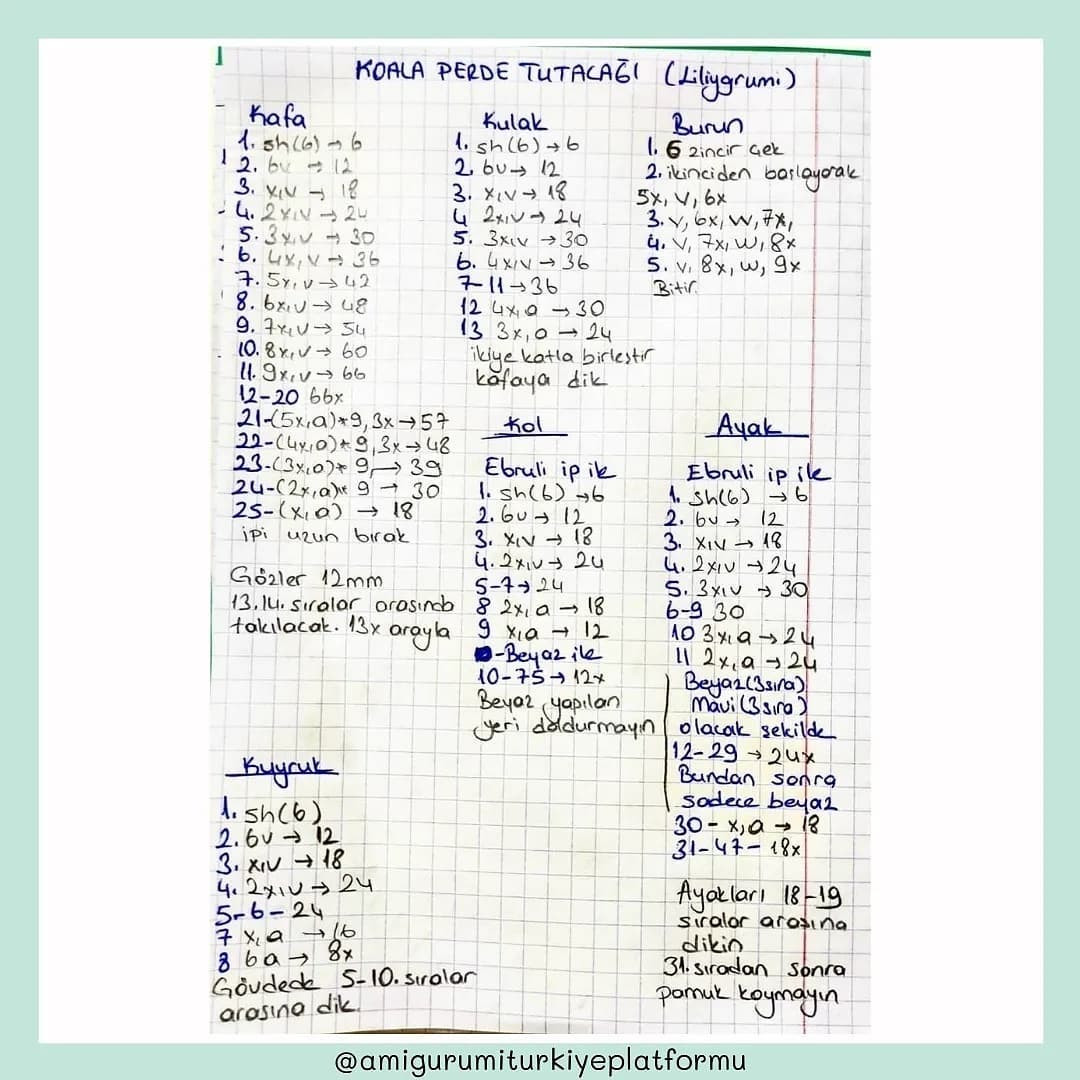 KOALA PERDE TUTACAĞI (Liliygrumi)
Kafa
1. sh(6) → 6
2. 6v → 12
3. x,v → 18
4. 2x,v → 24
5. 3x,v → 30
6. 4x,v → 36
7. 5x,v → 42
8. 6x,v → 48
9. 7x,v → 54
10. 8x,v → 60
11. 9x,v → 66
12-20 66x
21-(5x,a)*9, 3x → 57
22-(4x,a)*9, 3x → 48
23-(3x,a)* 9 → 39
24-(2x,a)* 9 → 30
25-(x,a) → 18
ipi uzun bırak
Gözler 12mm
13.14. sıralar arasında
takılacak. 13x arayla
Kulak
1. sh(6) → 6
2. 6v → 12
3. x,v → 18
4 2x,v → 24
5. 3x,v → 30
6. 4x,v → 36
7-11 → 36
12 4x,a → 30
13 3x,a → 24
ikiye katla birleştir
kafaya dik
Burun
1. 6 zincir çek
2. ikinciden başlayarak
5x, v, 6x
3. v, 6x, w, 7x,
4. v, 7x, w, 8x
5. v, 8x, w, 9x
Bitir.
Kol
Ebruli ip ile
1. sh(6) → 6
2. 6v → 12
3. x,v → 18
4. 2x,v → 24
5-7 → 24
8 2x, a → 18
9 x,a → 12
-Beyaz ile
10-75 → 12x
Beyaz yapılan
yeri doldurmayın
Ayak
Ebruli ip ile
1. sh(6) → 6
2. 6v → 12
3. x,v → 18
4. 2x,v → 24
5. 3x,v → 30
6-9 30
10 3x,a → 24
11 2x,a → 24
Beyaz(3sıra)
Mavi(3sıra)
olacak şekilde
12-29 → 24x
Bundan sonra
sadece beyaz
30- x,a → 18
31-47- 18x
Ayakları 18-19
sıralar arasına
dikin
31. sıradan sonra
pamuk koymayın
Kuyruk
1. sh(6)
2. 6v → 12
3. x,v → 18
4. 2x,v → 24
5-6- 24
7 x,a → 16
8 6a → 8x
Gövdede 5-10. sıralar
arasına dik.
@amigurumiturkiyeplatformu